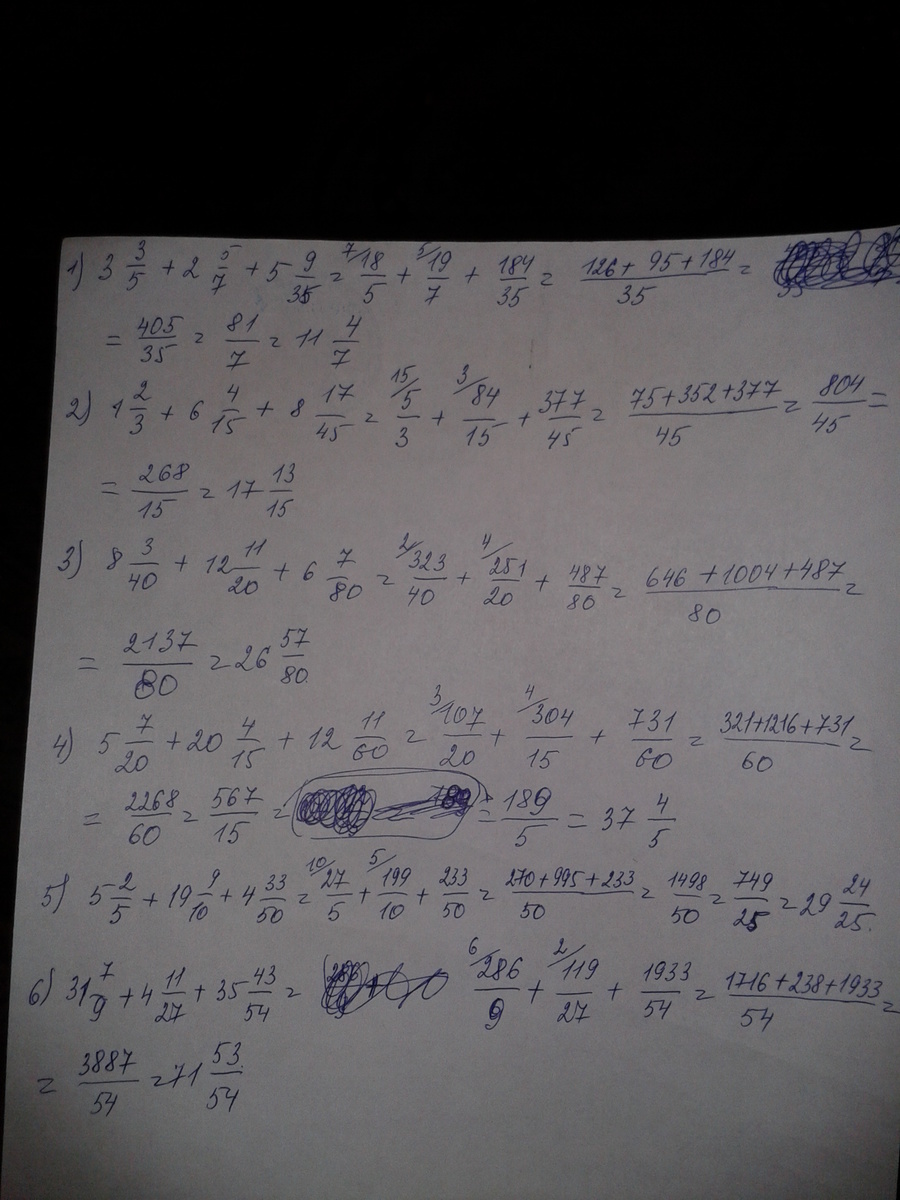 1) 3 3/5 + 2 5/7 + 5 9/35 = 7/ 18/5 + 5/ 19/7 + 184/35 = (126 + 95 + 184)/35 =
= 405/35 = 81/7 = 11 4/7
2) 1 2/3 + 6 4/15 + 8 17/45 = 15/ 5/3 + 3/ 84/15 + 377/45 = (75+352+377)/45 = 804/45 =
= 268/15 = 17 13/15
3) 8 3/40 + 12 11/20 + 6 7/80 = 2/ 323/40 + 4/ 251/20 + 487/80 = (646 + 1004 + 487)/80 =
= 2137/80 = 26 57/80
4) 5 7/20 + 20 4/15 + 12 11/60 = 3/ 107/20 + 4/ 304/15 + 731/60 = (321+1216+731)/60 =
= 2268/60 = 567/15 = = 189/5 = 37 4/5
5) 5 2/5 + 19 9/10 + 4 33/50 = 10/ 27/5 + 5/ 199/10 + 233/50 = (270+995+233)/50 = 1498/50 = 749/25 = 29 24/25.
6) 31 7/9 + 4 11/27 + 35 43/54 = 6/ 286/9 + 2/ 119/27 + 1933/54 = (1716 + 238 + 1933)/54 =
= 3887/54 = 71 53/54